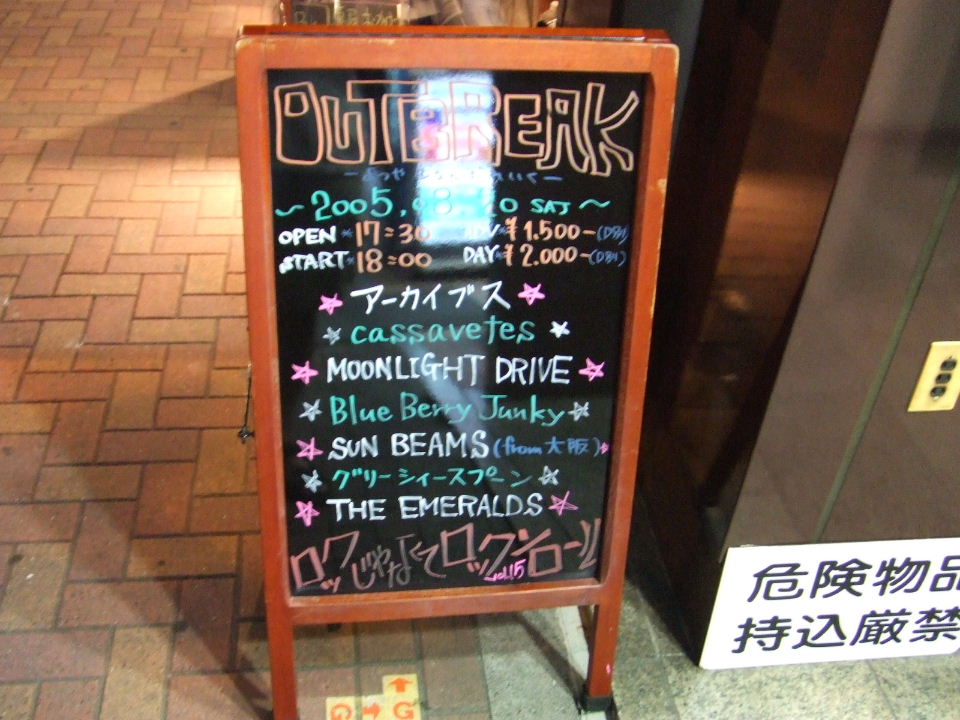 OUTBREAK
～2005.08 20 SAT～
OPEN 17:30 ADV ¥1.500-(D別)
START 18:00 DAY ¥2.000-(D別)
☆アーカイブス☆
☆cassavetes☆
☆MOONLIGHT DRIVE☆
☆Blue Berry Junky☆
☆SUN BEAMS(from大阪)☆
☆グリーシィースプーン☆
☆THE EMERALDS☆
ロックじゃなくてロックンロール
vol.15
危険物品
持込厳禁
G
G